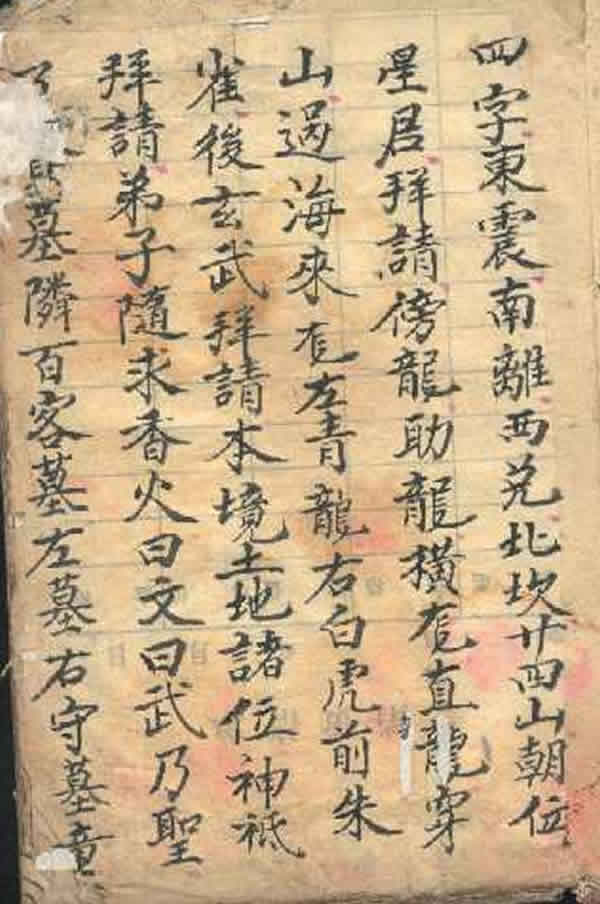 四字東震南離西兑北坎廿四山朝位
星君拜請傍龍助龍橫龙直龍穿
山過海來龙左青龍右白虎前朱
雀後玄武拜請本境土地諸位神祇
拜請弟子隨求香火曰文曰武乃聖
墓隣百客墓左墓右守墓童